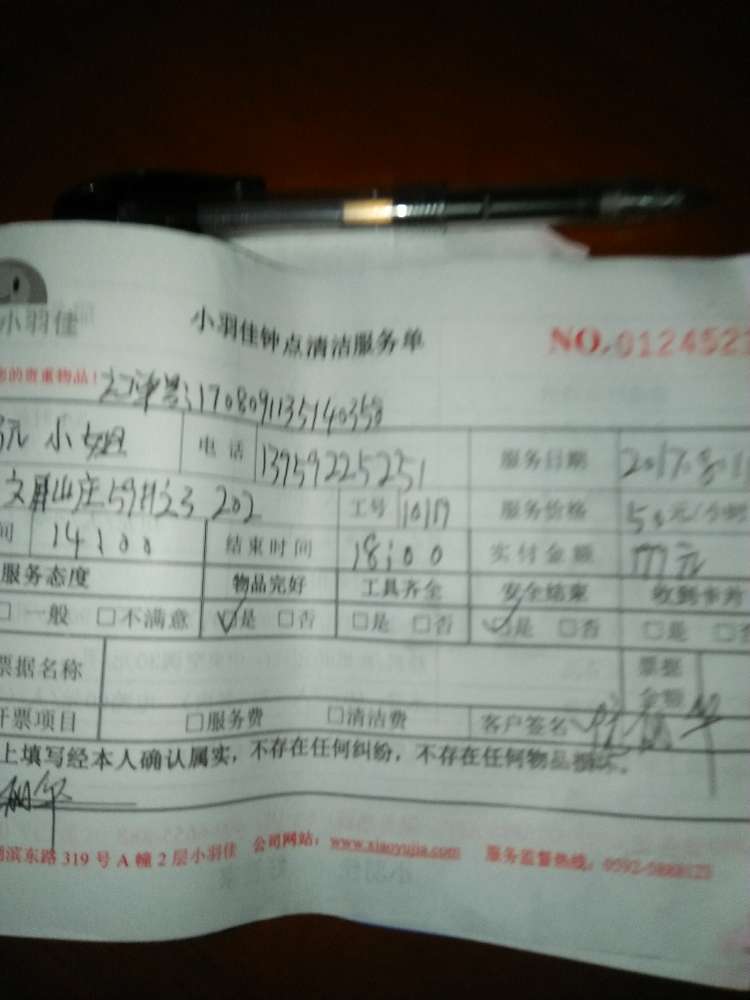 小羽佳
小羽佳钟点清洁服务单
NO.012452
您的贵重物品!
订单号:1708091135140358
小姐 电话 13959225251 服务日期 2017.8.1
文屏山庄59号23 202 工号 1017 服务价格 50元/小时
间 14:00 结束时间 18:00 实付金额 177元
服务态度 物品完好 工具齐全 安全结束 收到卡片
□一般 □不满意 是 □否 □是 □否 是 □否 □是
票据名称 票据金额
开票项目 □服务费 □清洁费 客户签名
上填写经本人确认属实,不存在任何纠纷,不存在任何物品损坏。
湖滨东路319号A幢2层小羽佳 公司网站:www.xiaoyujia.com 服务监督热线: